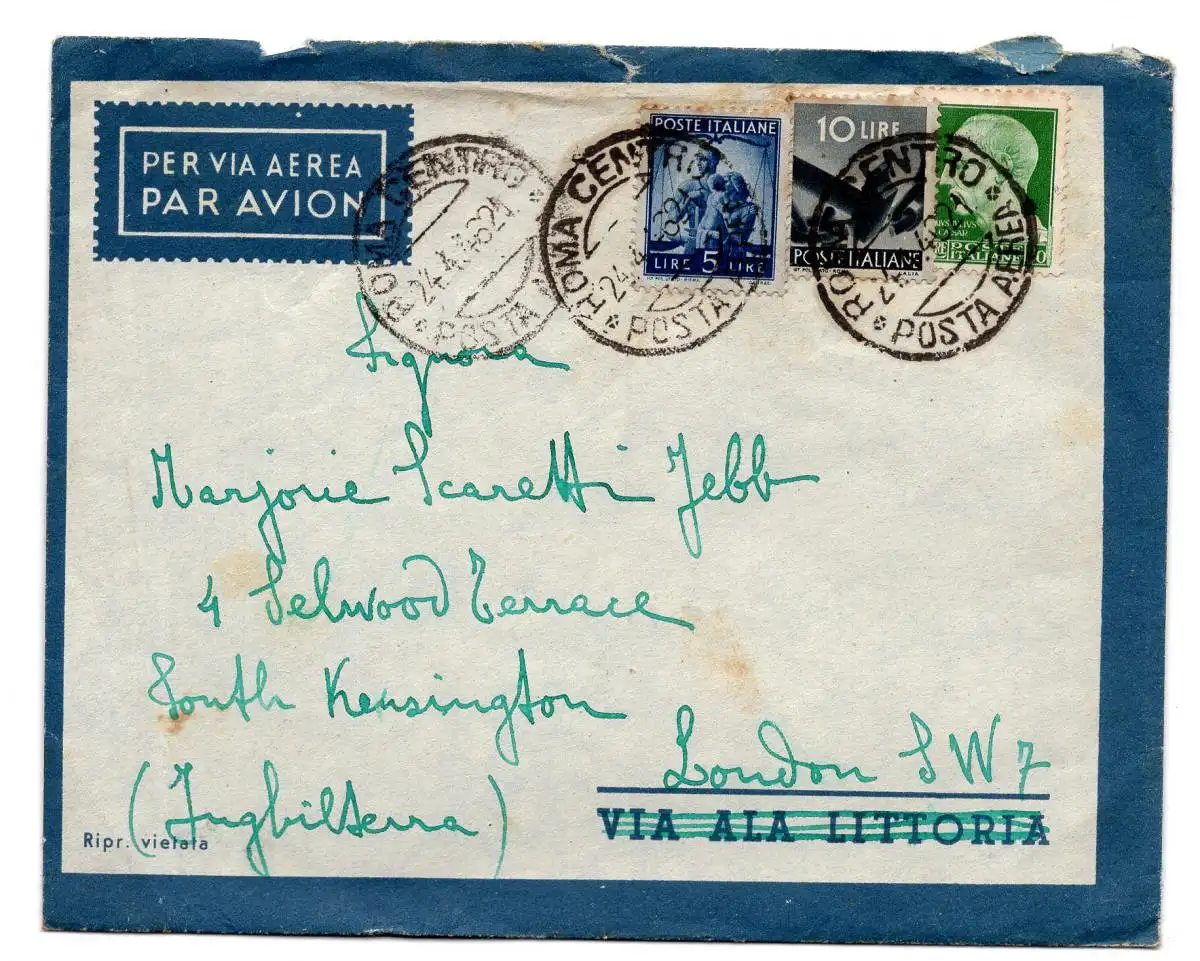 PER VIA AEREA
PAR AVION
ROMA CENTRO
24.4.48 21
POSTA
POSTE ITALIANE
LIRE 5 LIRE
ROMA CENTRO
24.4.48 21
POSTA
10 LIRE
POSTE ITALIANE
ROMA CENTRO
24.4.48 21
POSTA AEREA
CAESAR
POSTE
ITALIANE
Signora
Marjorie Scaretti Jebb
4 Selwood Terrace
South Kensington
London SW7
(Inghilterra)
VIA ALA LITTORIA
Ripr. vietata